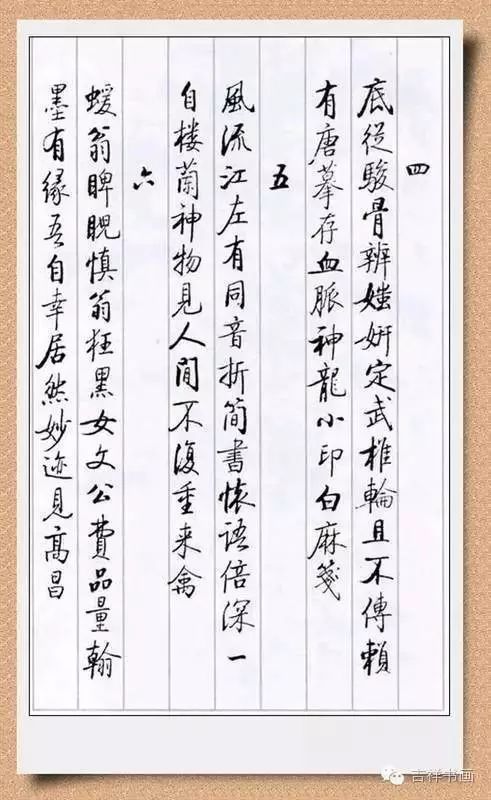 四
底從駿骨辨媸妍定武椎輪且不傳賴
有唐摹存血脈神龍小印白麻箋
五
風流江左有同音折簡書懷語倍深一
自楼蘭神物見人間不復重来禽
六
蝯翁睥睨慎翁狂黑女文公費品量翰
墨有緣吾自幸居然妙迹見高昌
吉祥书画